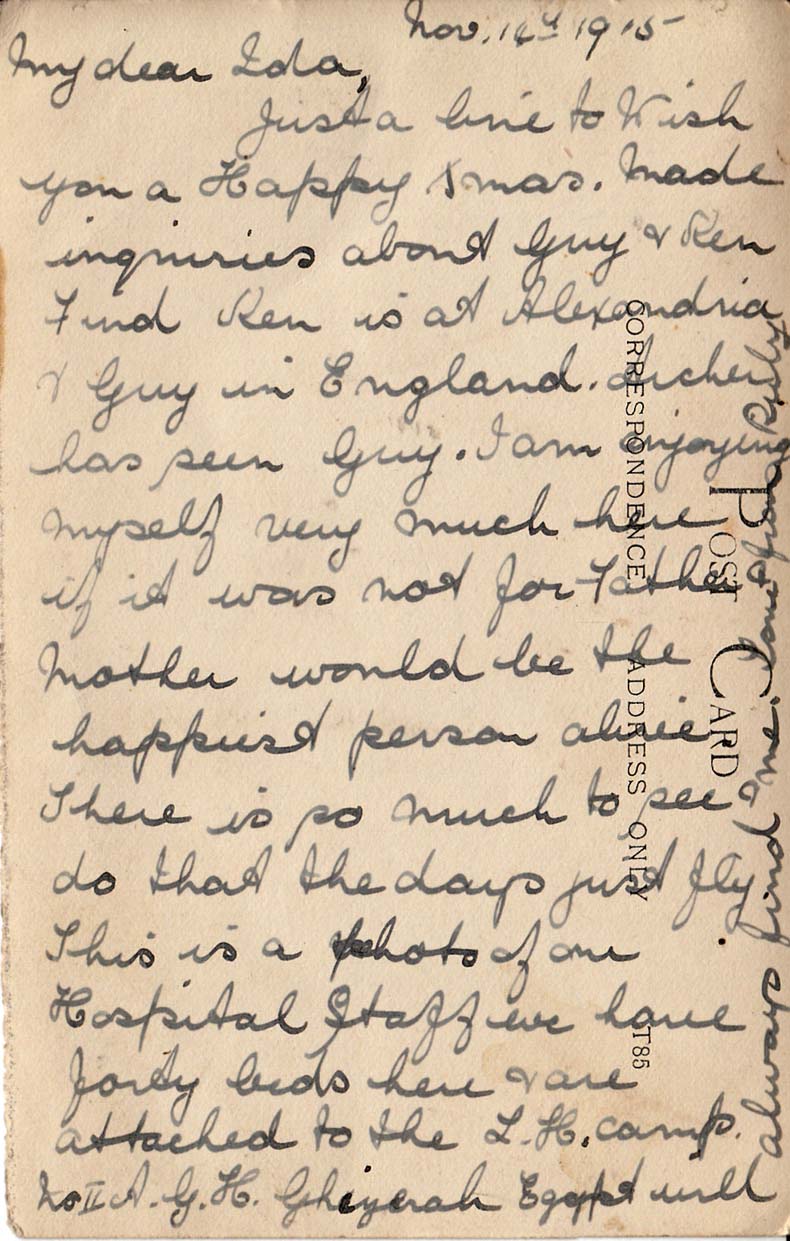 Nov. 14th 1915
My dear Ida,
Just a line to Wish
you a Happy Xmas. Made
inquiries about Guy & Ken
Find Ken is at Alexandria
& Guy in England.
has seen Guy. I am enjoying
myself very much here
if it was not for Father
Mother would be the
happiest person alive.
There is so much to see &
do that the days just fly
This is a photo of our
Hospital Staff we have
forty beds here & are
attached to the L.H. camp.
No II A.G.H. Ghizerah Egypt will
always find me. Love from
POST CARD
CORRESPONDENCE. ADDRESS ONLY
T85